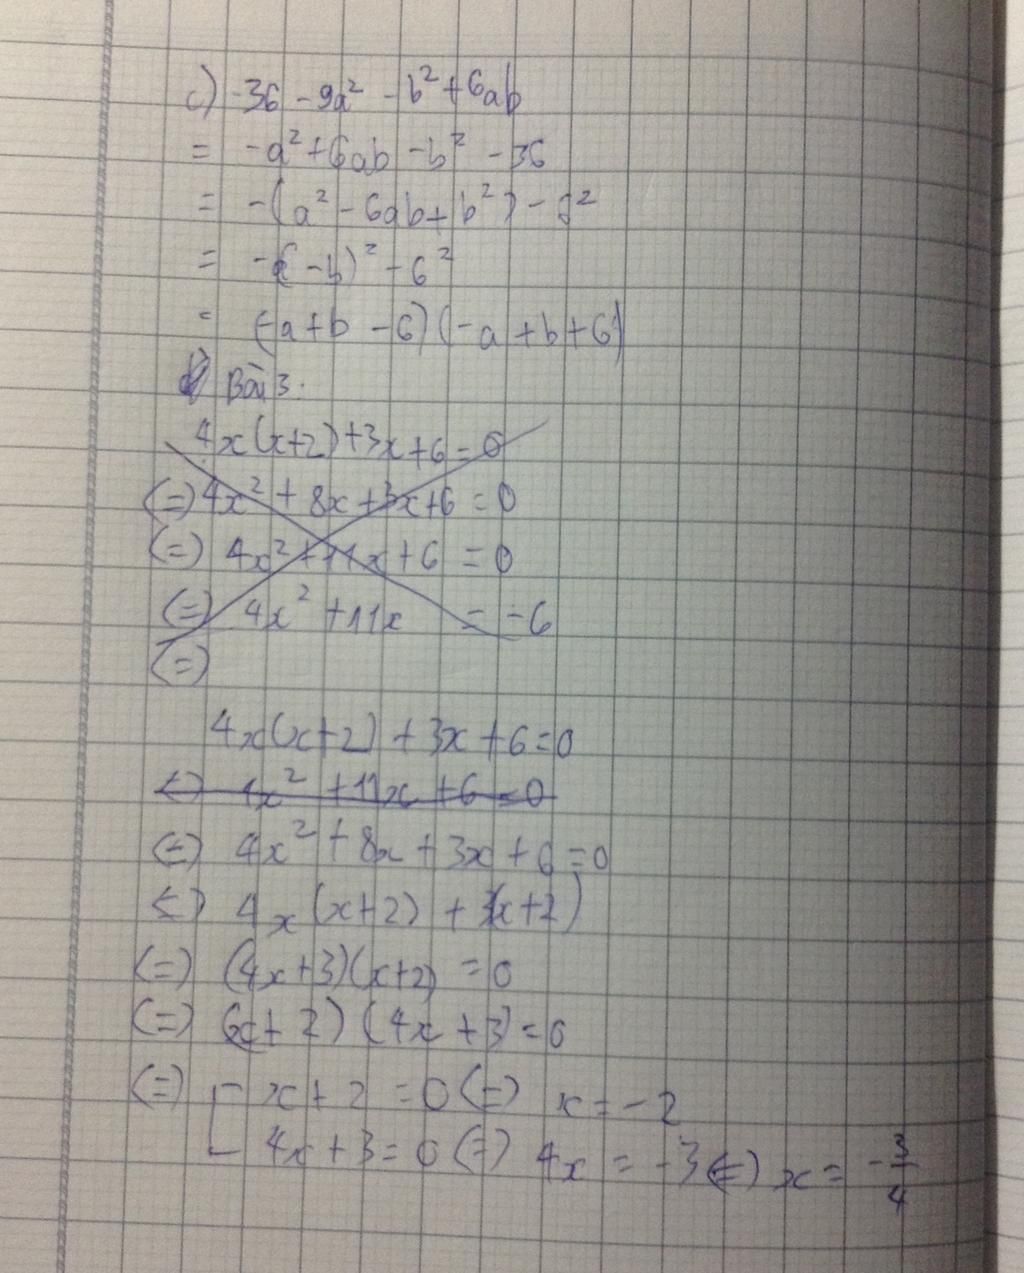 c) -36 - 9a² - b² + 6ab
= -a² + 6ab - b² - 36
= -(a² - 6ab + b²) - 6²
= -( - b)² - 6²
= (-a + b - 6)(-a + b + 6)
Bài 3:
4x(x+2) + 3x + 6 = 0
(=) 4x² + 8x + 3x + 6 = 0
(=) 4x² + 11x + 6 = 0
(=) 4x² + 11x = -6
(=)
4x(x+2) + 3x + 6 = 0
<=> 4x² + 11x + 6 = 0
(=) 4x² + 8x + 3x + 6 = 0
<=> 4x(x+2) + 3(x+2)
(=) (4x+3)(x+2) = 0
(=) (x+2)(4x+3) = 0
(=) [ x + 2 = 0 (=) x = -2
4x + 3 = 0 (=) 4x = -3 (=) x = -3/4